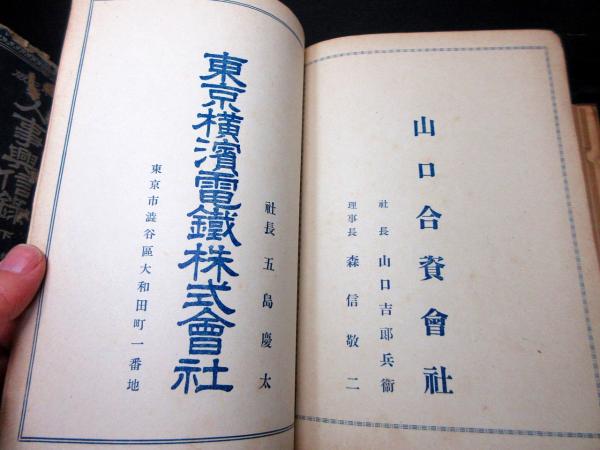 山口合資會社
社長 山口吉郎兵衞
理事長 森信敬二
社長 五島慶太
東京橫濱電鐵株式會社
東京市澁谷區大和田町一番地
人事興信錄 下